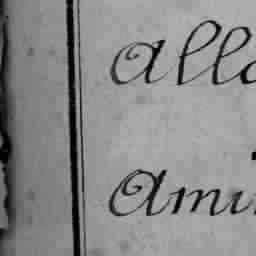 Alla
Ami